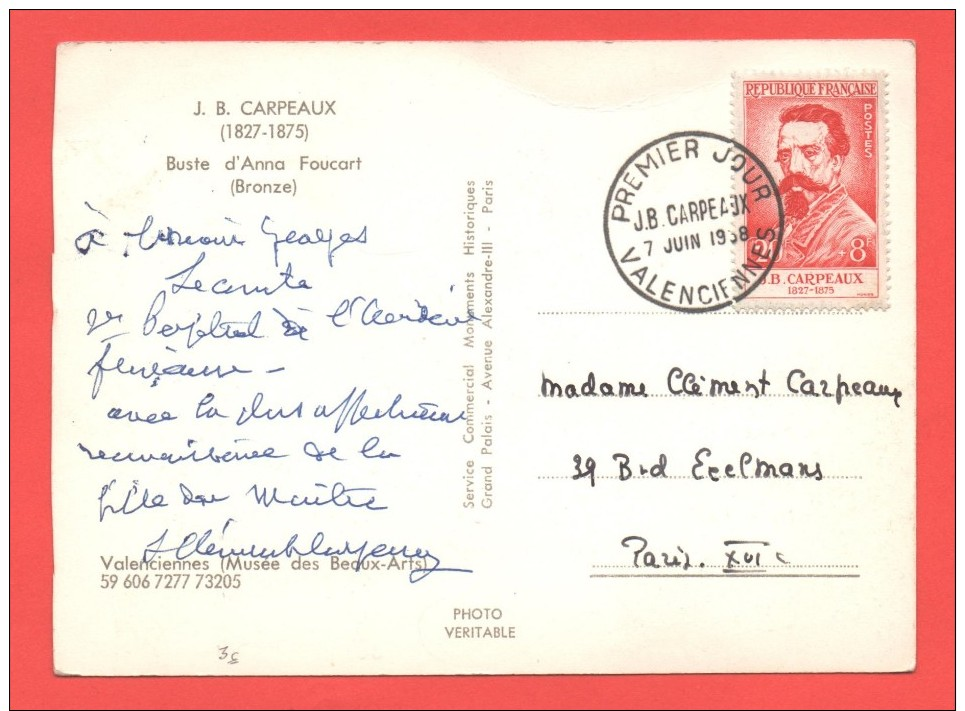 J. B. CARPEAUX
(1827-1875)
Buste d'Anna Foucart
(Bronze)
à Georges
Lecomte
Perpétuel de l'Académie
française -
avec la plus affectueuse
reconnaissance de la
fille du Maître
Clément Carpeaux
Valenciennes (Musée des Beaux-Arts)
59 606 7277 73205
3c
PHOTO
VERITABLE
Service Commercial Monuments Historiques
Grand Palais - Avenue Alexandre-III - Paris
PREMIER JOUR
J.B. CARPEAUX
7 JUIN 1958
VALENCIENNES
REPUBLIQUE FRANÇAISE
POSTES
+8F
J.B. CARPEAUX
1827-1875
Madame Clément Carpeaux
39 Bvd Exelmans
Paris. XVIe